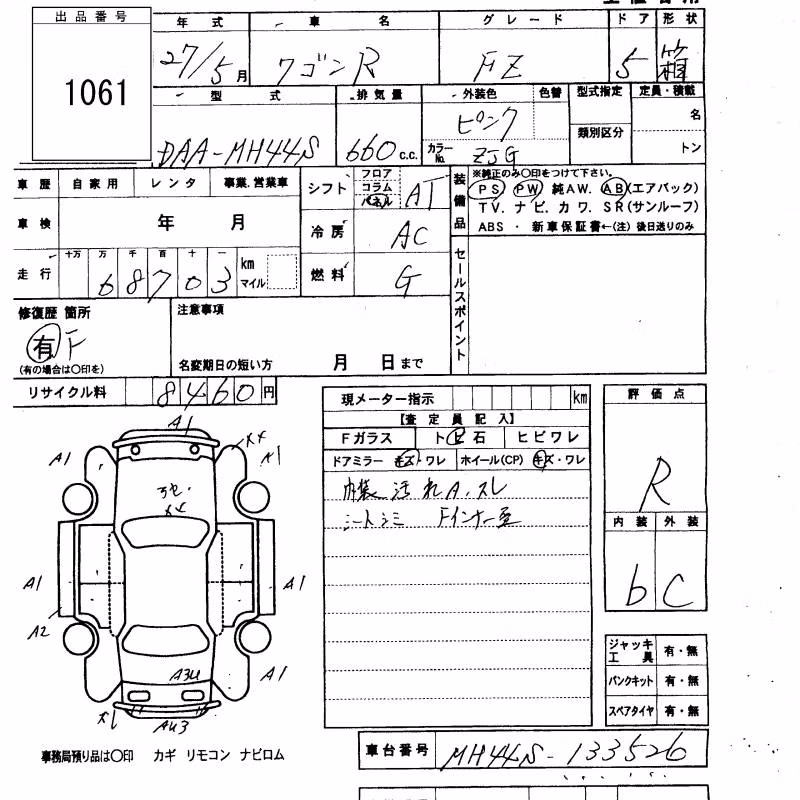 出品番号
1061
年式 車名 グレード ドア 形状
27/5月 ワゴンR FZ 5 箱
型式 排気量 外装色 色替 型式指定 定員・積載
DAA-MH44S 660c.c. ピンク 類別区分 名
カラーNo. ZJG トン
車歴 自家用 レンタ 事業.営業車
車検 年 月
走行 十万 万 千 百 十 一 km マイル
68703
シフト フロア コラム パネル AT
冷房 AC
燃料 G
装備品
※純正のみ〇印をつけて下さい。
PS PW 純AW. AB(エアバック)
TV. ナビ. カワ. SR(サンルーフ)
ABS ・ 新車保証書←(注) 後日送りのみ
セールスポイント
修復歴 箇所
有 F
(有の場合は〇印を)
注意事項
名変期日の短い方 月 日まで
リサイクル料 8460円
現メーター指示 km
【査定員記入】
Fガラス トビ石 ヒビワレ
ドアミラー キズ・ワレ ホイール(CP) キズ・ワレ
内装汚れA.スレ
シートシミ Fインナー
評価点
R
内装 外装
b C
A1
A1
A1
A1
A1
A2
A1
A3U
AU3
ジャッキ工具 有・無
パンクキット 有・無
スペアタイヤ 有・無
事務局預り品は〇印 カギ リモコン ナビロム
車台番号 MH44S-133526